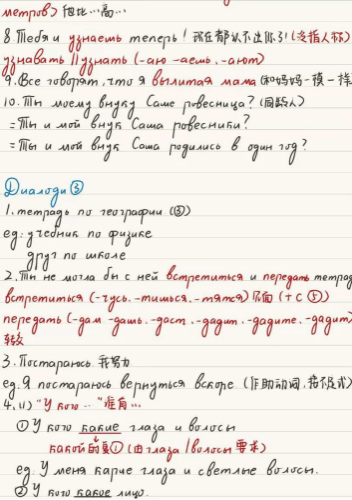 метров) 但比…高…
8. Тебя и узнаешь теперь! 现在都认不出你了! (泛指人称)
узнавать || узнать (-аю -аешь. -ают)
9. Все говорят, что я вылитая мама (和妈妈一模一样)
10. Ты моему внуку Саше ровесница? (同龄人)
= Ты и мой внук Саша ровесники?
= Ты и мой внук Саша родились в один год?
Диалоги ③
1. тетрадь по географии (③)
eg: учебник по физике
друг по школе
2. Ты не могла бы с ней встретиться и передать тетрад
встретиться (-чусь. -тишься. -тятся) 见面 (+ с ⑤)
передать (-дам -дашь. -даст. -дадим. -дадите. -дадут)
转交
3. Постараюсь 我努力
eg. Я постараюсь вернуться вскоре (作助动词, 接不定式)
4. (1) "У кого … " 谁有…
① У кого какие глаза и волосы
какой的复① (由глаза / волосы 要求)
eg. У меня карие глаза и светлые волосы.
② У кого какое лицо.